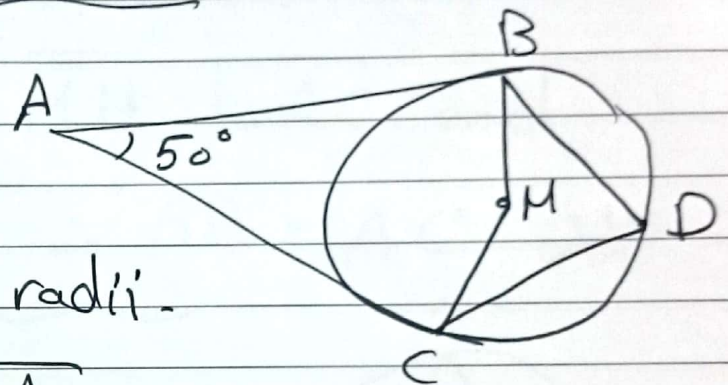 B
A
50°
M
D
radii.
C